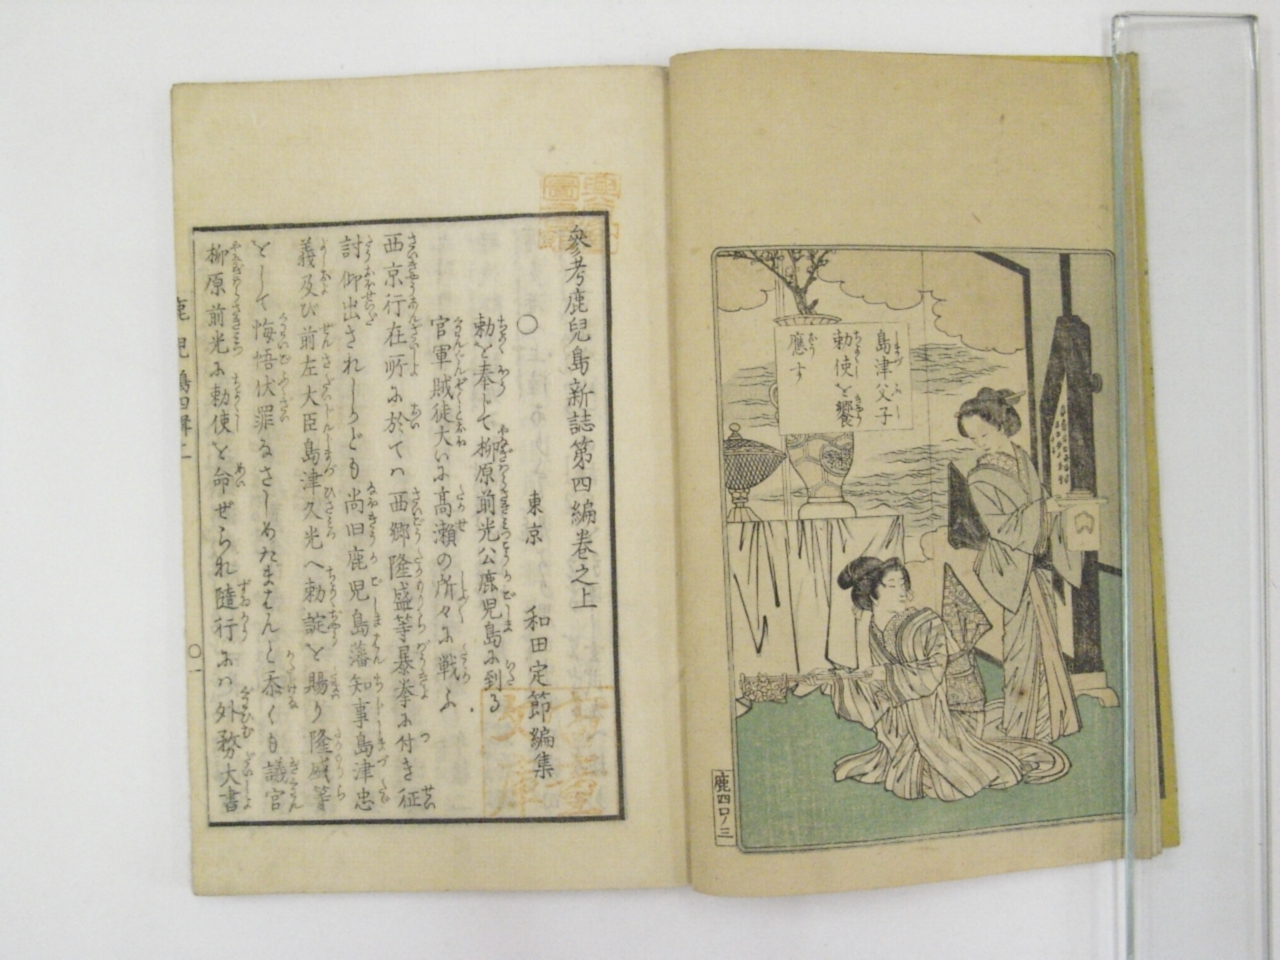 島津父子
勅使を饗
應す
鹿四口ノ三
參考鹿兒島新誌第四編巻之上
東京 和田定節編集
〇
勅を奉じて柳原前光公鹿児島に到る
官軍賊徒大いに髙瀬の所々に戦ふ
西京行在所に於てハ西郷隆盛等暴挙に付き征
討仰出されしかども尚旧鹿児島藩知事島津忠
義及び前左大臣島津久光へ勅諚を賜り隆盛等
をして悔悟伏罪なさしめたまはんと忝くも議官
柳原前光に勅使を命ぜられ随行にハ外務大書
鹿児島四輯上
〇一